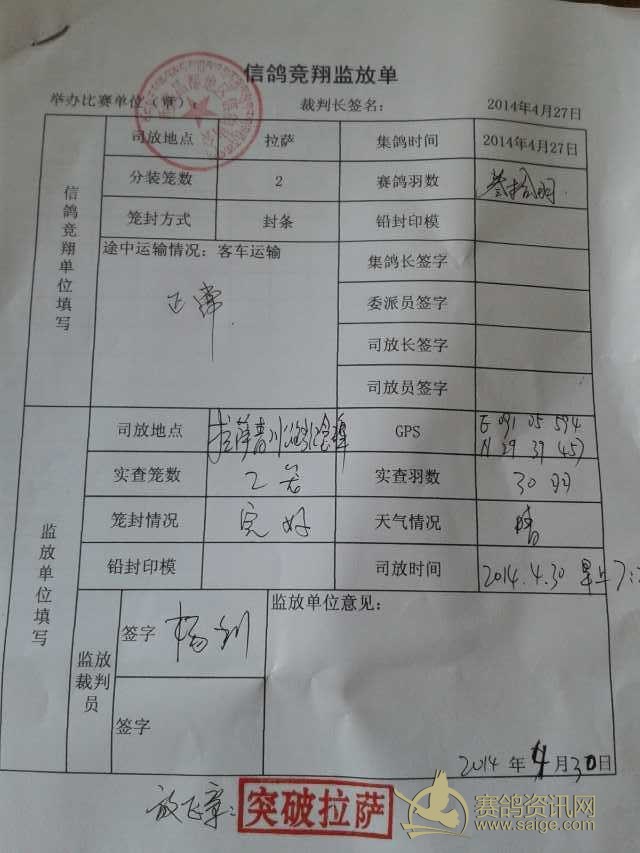 信鸽竞翔监放单
举办比赛单位(章): 裁判长签名: 2014年4月27日
信鸽竞翔单位填写
司放地点 拉萨 集鸽时间 2014年4月27日
分装笼数 2 赛鸽羽数 叁拾羽
笼封方式 封条 铅封印模
途中运输情况: 客车运输 集鸽长签字
正常 委派员签字
司放长签字
司放员签字
监放单位填写
司放地点 拉萨 GPS E 091 05 594
N 29 39 457
实查笼数 2 实查羽数 30羽
笼封情况 完好 天气情况 晴
铅封印模 司放时间 2014.4.30 早上7:
监放裁判员 签字 监放单位意见:
签字
2014年4月30日
放飞章: 突破拉萨
赛鸽资讯网
www.saige.com